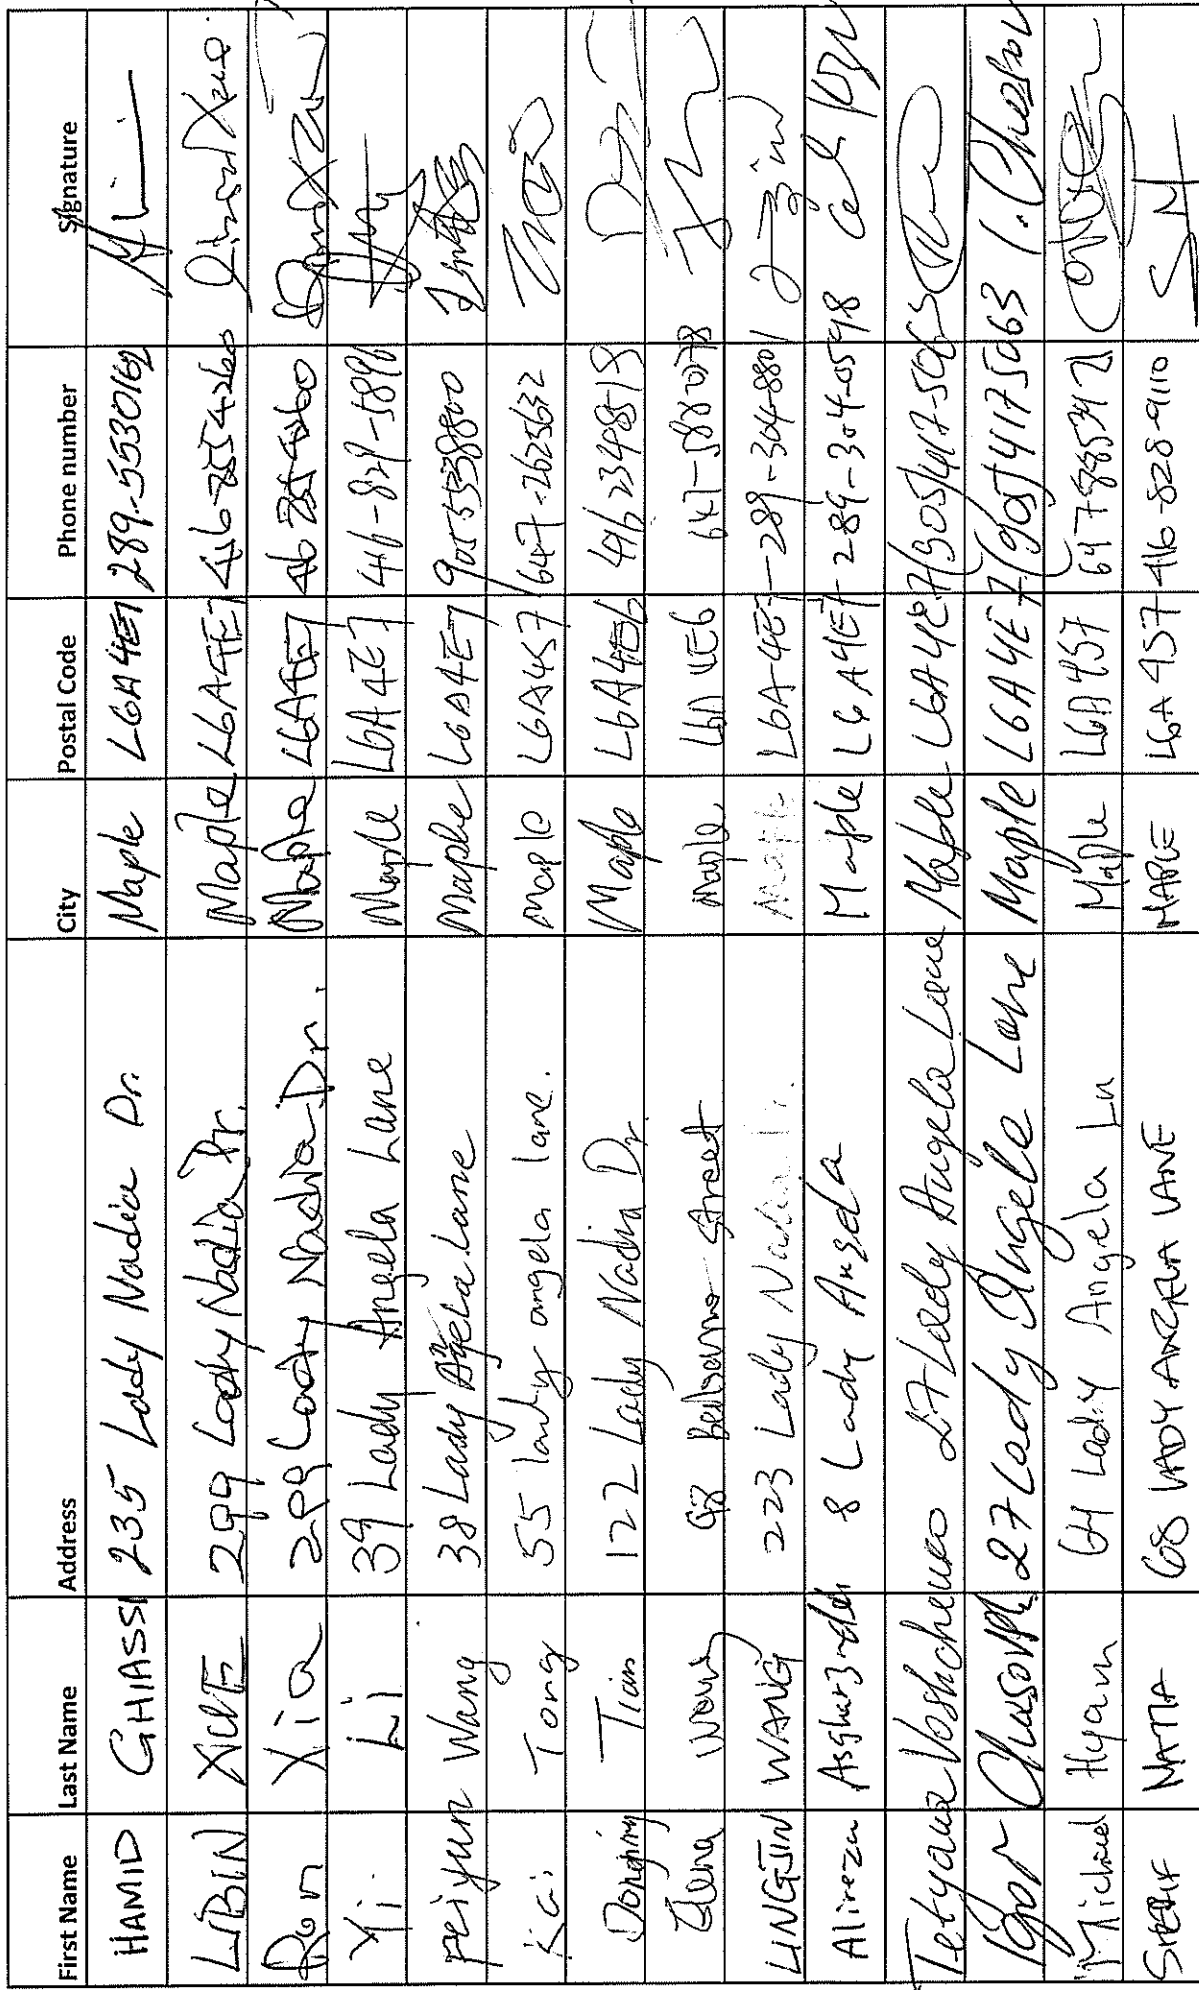 First Name Last Name Address City Postal Code Phone number Signature
HAMID GHIASSI 235 Lady Nadia Dr. Maple L6A 4E7 289-5530162
LIBIN XUE 299 Lady Nadia Dr. Maple L6A4E7 416-7254260 Libin Xue
Run Xia 299 Lady Nadia Dr. Maple L6A4E7
Yi Li 39 Lady Angela Lane Maple L6A 4E7 416-829-5896
Peiyun Wang 38 Lady Angela Lane Maple L6A4E7 9055538800
Kai Tong 55 lady angela lane. Maple L6A4S7 647-2625632
Dongming Tian 122 Lady Nadia Dr. Maple L6A4E6 4162348519
Elena Wong Street Maple L6A 4E6 647-5880078
LINGJIN WANG 223 Lady Nadia Dr. Maple L6A-4E7 289-304-8801
Alireza Asgharzadeh 8 Lady Angela Maple L6A4E7 289-304-0598
Tetyana 27 Lady Angela Lane Maple L6A4E7 (905)417-5063
Igor 27 Lady Angela Lane Maple L6A 4E7 (905)4175063 I.
Michael Hyam 64 Lady Angela Ln Maple L6A 4S7 6478853912
SHERIF MATTA 68 LADY ANGELA LANE MAPLE L6A 4S7 416-828-9110 SM